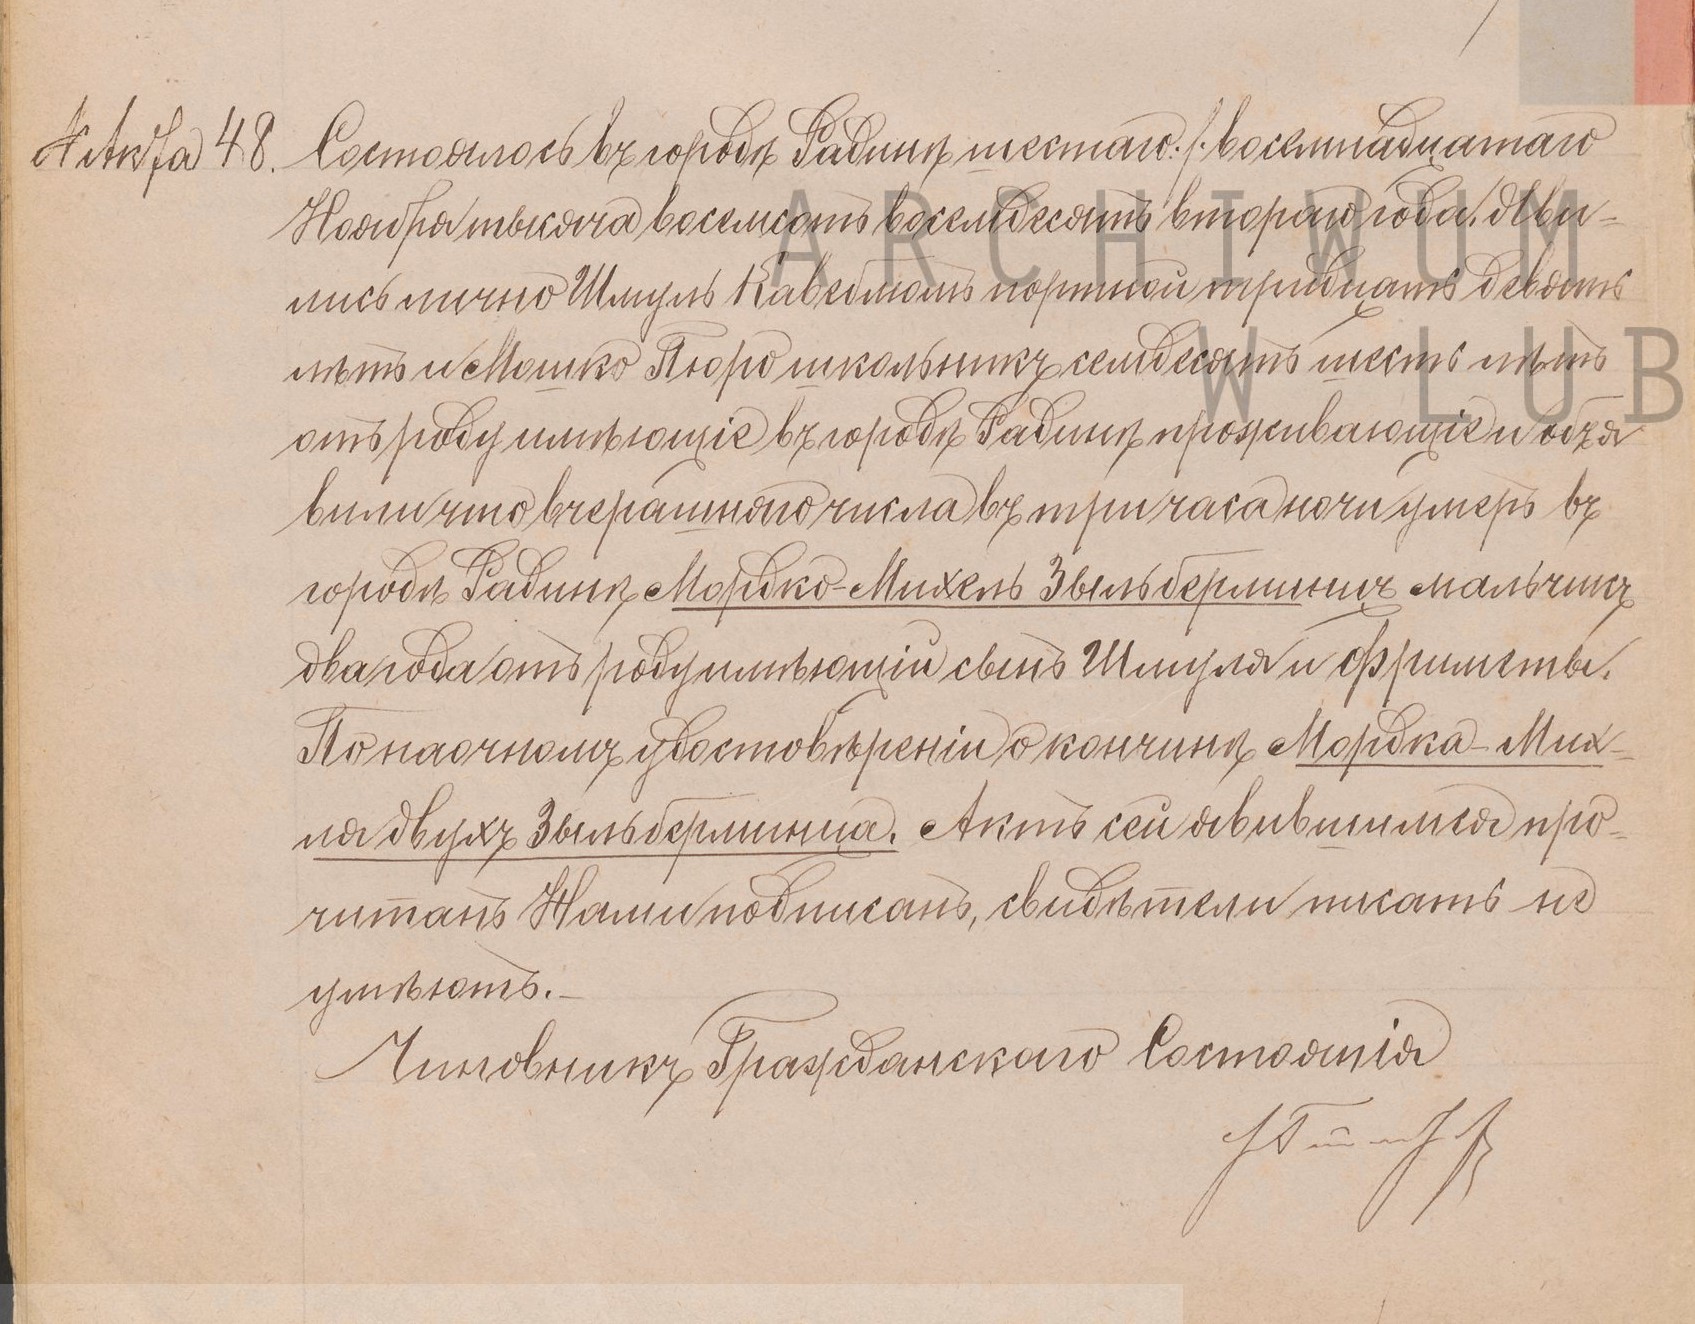 № Акта 48. Состоялось въ городѣ Радинѣ шестаго ./. восемнадцатаго
Ноября тысяча восемсотъ восемдесятъ втораго года. Яви-
лись лично Шмуль портной тридцать девять
лѣтъ и Мошко Пюро школьникъ семдесятъ шесть лѣтъ
отъ роду имѣющіе въ городѣ Радинѣ проживающіе и объя
вили что вчерашняго числа въ три часа ночи умеръ въ
городѣ Радинѣ Мордко-Михель Зыльберминцъ мальчикъ
два года отъ роду имѣющій сынъ Шмуля и Фриметы.
По наочномъ удостовѣреніи о кончинѣ Мордка-Мих-
ля двухъ Зыльберминца. Актъ сей явившимся про-
читанъ Нами подписанъ, свидѣтели писать не
умѣютъ.-
Чиновникъ Гражданскаго Состоянія
ARCHIWUM
W LUB